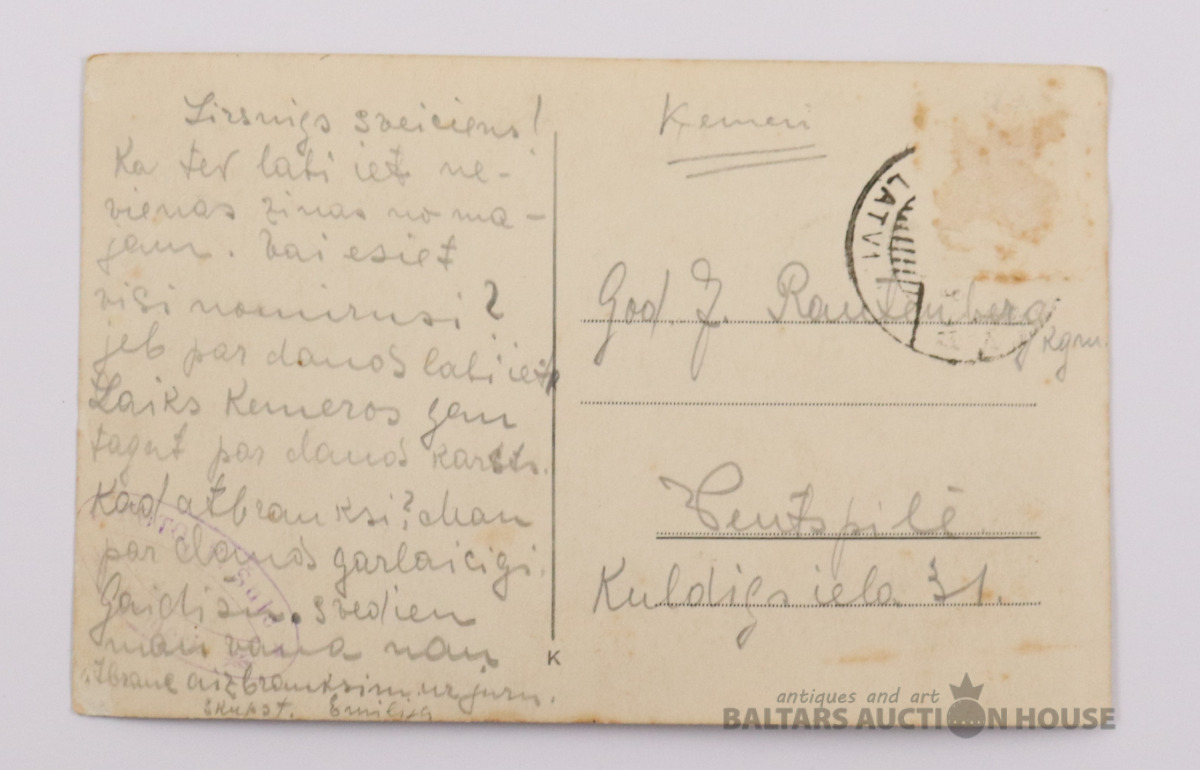 Sirsnigs sveiciens!
Ka tev labi iet ne-
vienas zinas no ma-
jam. Vai esiet
visi nomirusi?
jeb par daudś labi iet,
Laiks Kemeros gan
tagat par daudś karsts.
Kad atbrauksi? Man
par daudś garlaicigi.
Gaidisu. svedien
man vana nau
Izbraue aizbrauksim uz juru.
Emilija
K
Kemeri
LATVI
God. J. Rautenberg
kgm.
Ventspilē
Kuldigsiela 31.
antiques and art
BALTARS AUCTION HOUSE